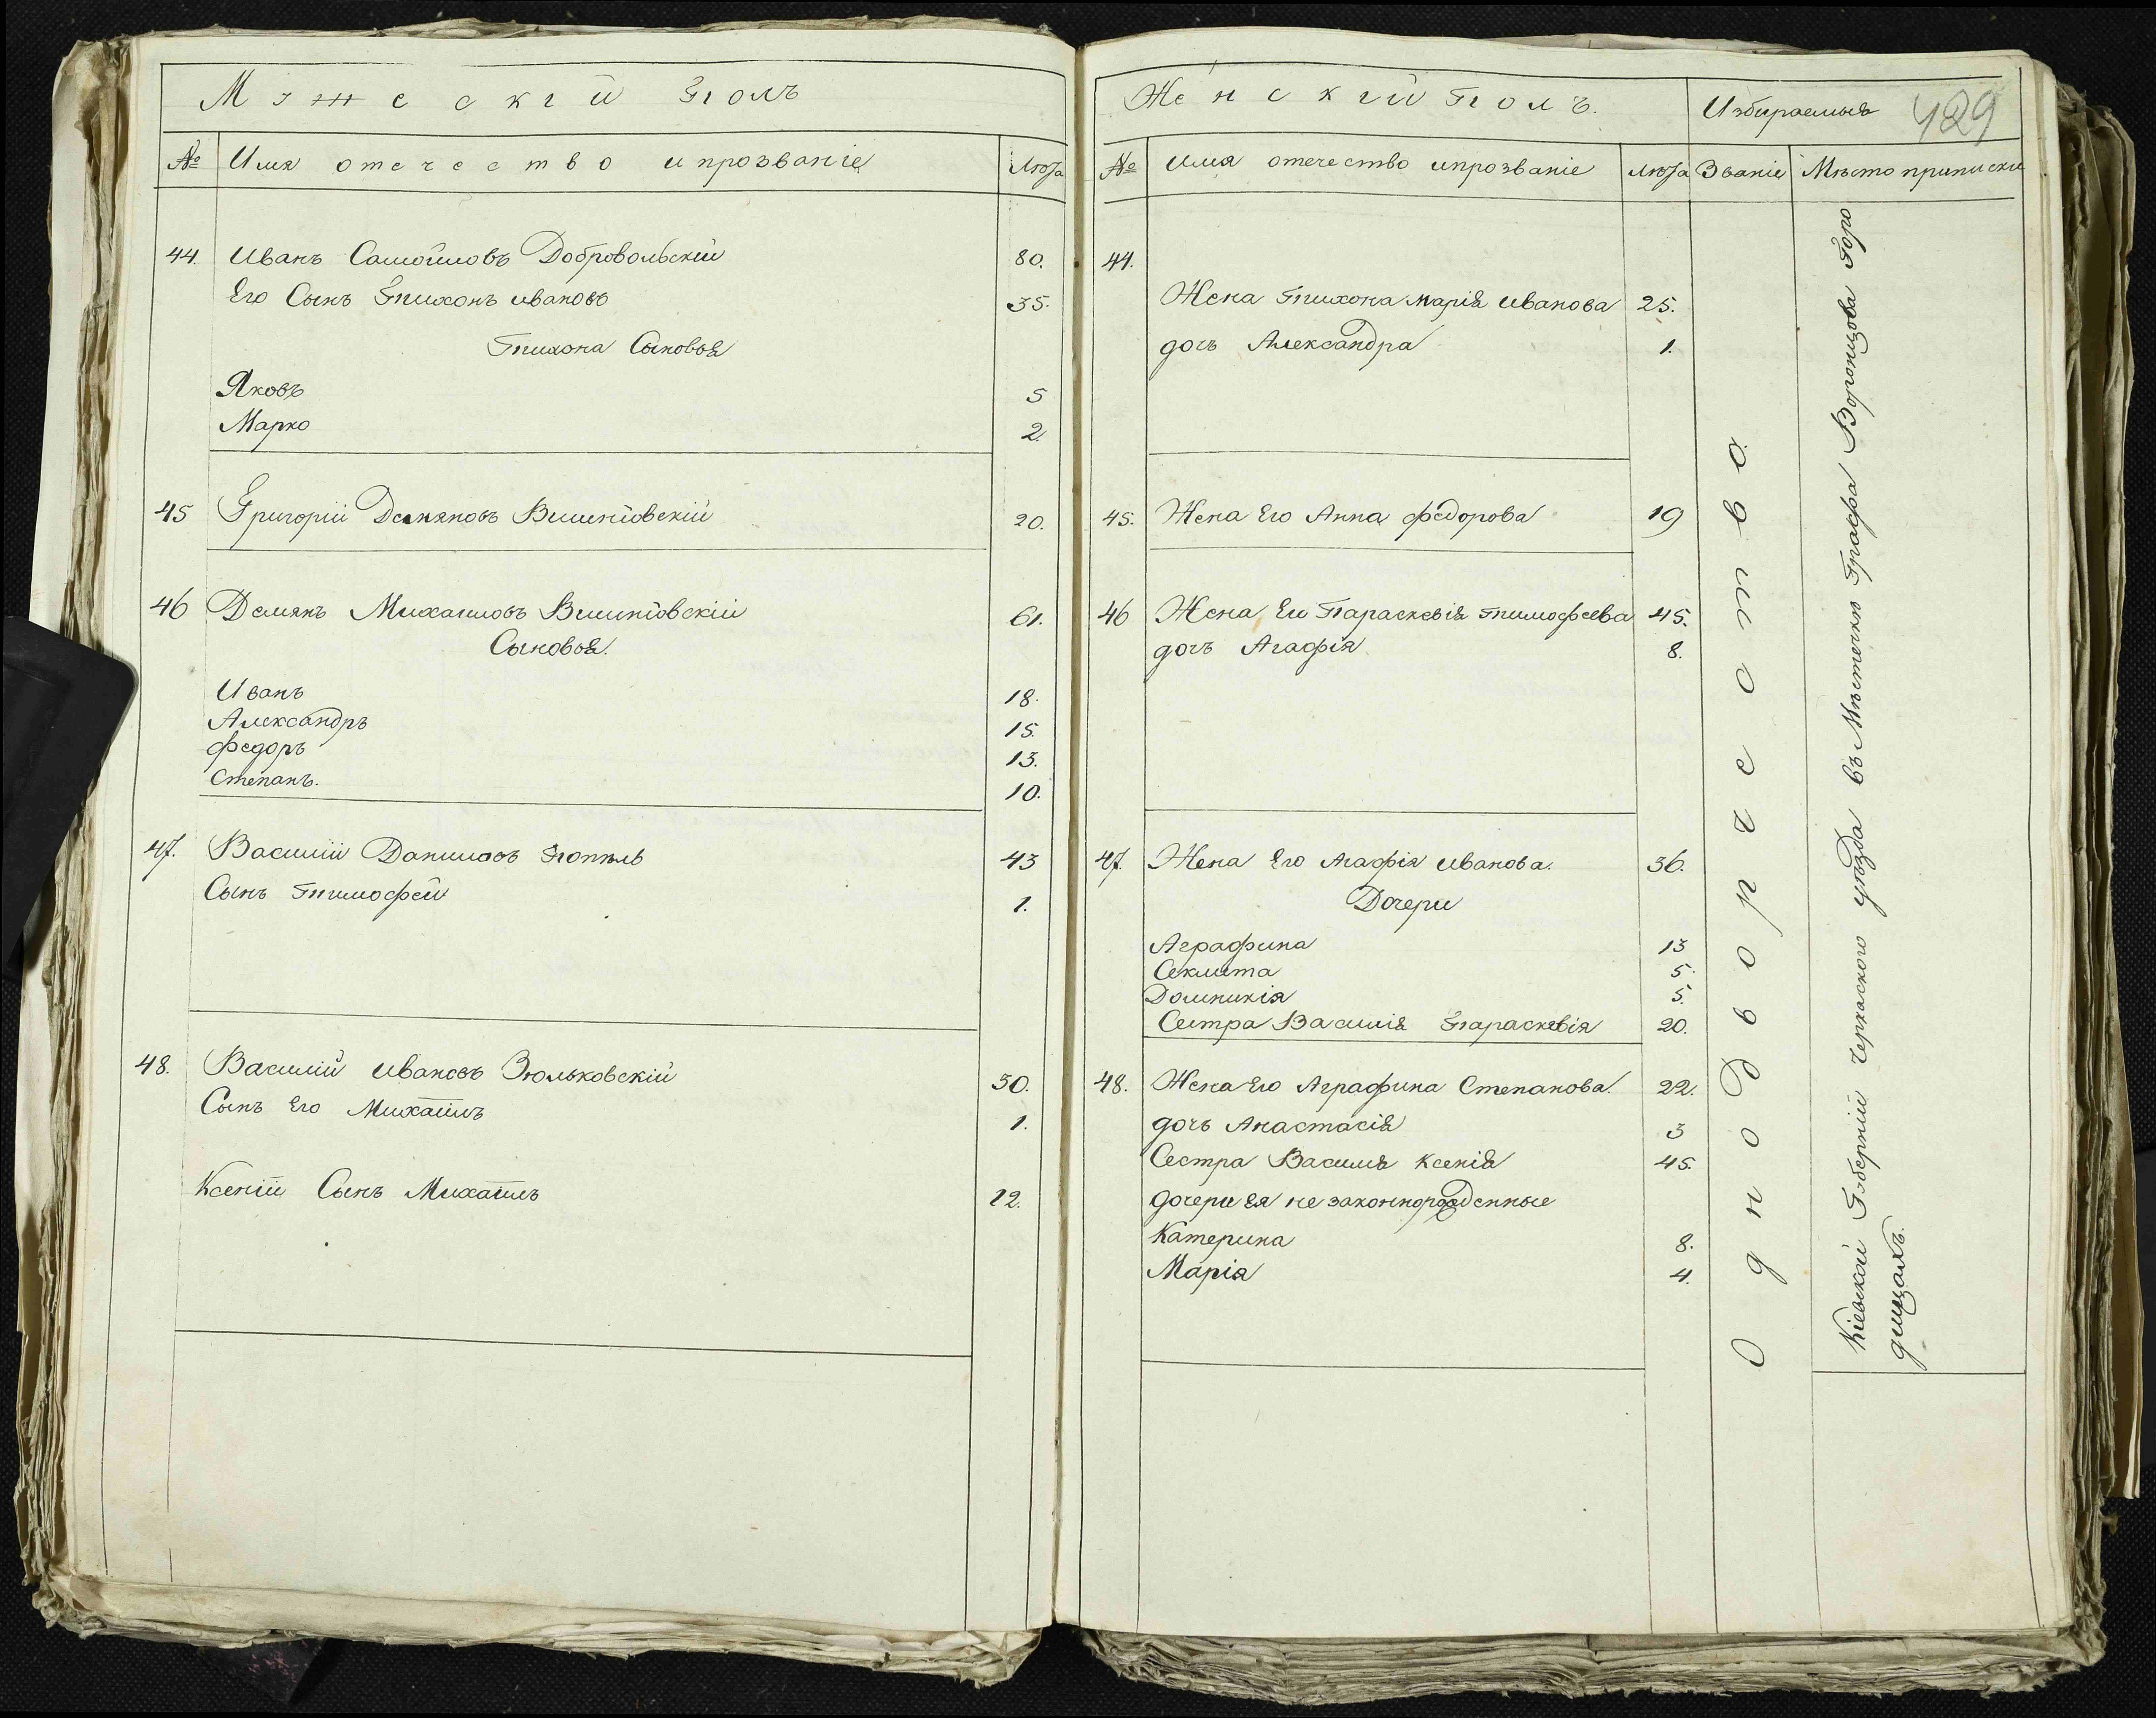 Мужескій Полъ
№ Имя отечество и прозваніе Лѣта
44. Иванъ Самойловъ Добровольскій 80.
Его Сынъ Тихонъ ивановъ 35.
Тихона Сыновья
Яковъ 5
Марко 2
45 Григорій Демяновъ Вишнiовскій 20.
46 Демянъ Михаиловъ Вишнiовскій 61.
Сыновья.
Иванъ 18.
Александръ 15.
федоръ 13.
Степанъ. 10.
47. Василій Даниловъ 43
Сынъ Тимофей 1.
48. Василій ивановъ Зюльковскій 30.
Сынъ Его Михаилъ 1.
Ксеніи Сынъ Михаилъ 12.
Женскій Полъ. Избираемыя 429
№ имя отечество ипрозваніе лѣта Званіе Мѣсто приписки
44.
Жена Тихона марія иванова 25.
дочъ Александра 1.
45. Жена Его Анна федорова 19
46 Жена Ею Параскевія тимофеева 45.
дочъ Агафія 8.
47. Жена Его Агафія иванова. 36.
Дочери
Аграфина 13
Секлита 5.
Домникія 5.
Сестра Василія Параскевія 20.
48. Жена Его Аграфина Степанова. 22.
дочъ Анастасія 3
Сестра Василія Ксенія 45.
дочери ея не законнорожденные
Катерина 8.
Марія 4.
Однодворчество.
Кіевской Губерніи Черкаского уѣзда въ Мѣстечкѣ Графа Воронцова Горо
дищахъ.